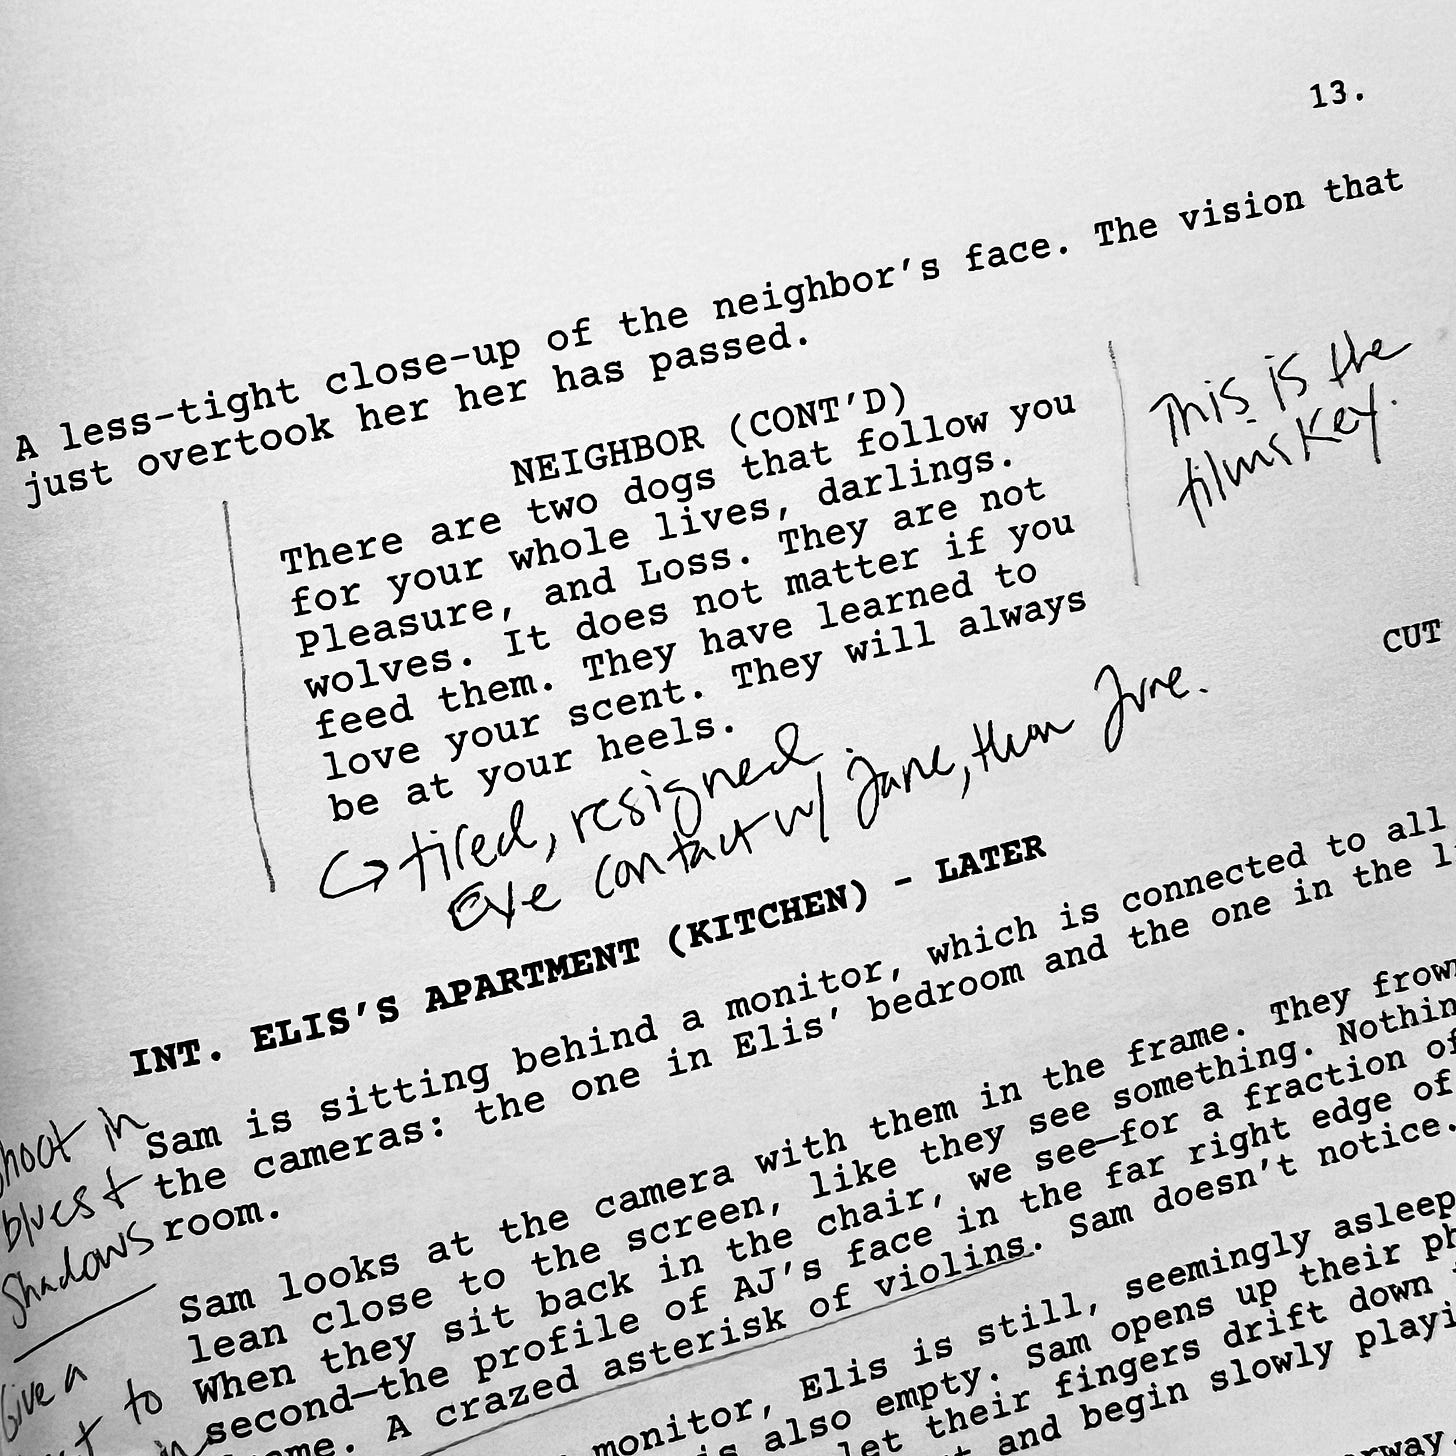 13.
A less-tight close-up of the neighbor's face. The vision that
just overtook her her has passed.
NEIGHBOR (CONT'D)
There are two dogs that follow you
for your whole lives, darlings.
Pleasure, and Loss. They are not
wolves. It does not matter if you
feed them. They have learned to
love your scent. They will always
be at your heels.
This is the
films key.
CUT
tired, resigned
eye contact w/ Jane, then June.
INT. ELIS'S APARTMENT (KITCHEN) - LATER
Sam is sitting behind a monitor, which is connected to all
the cameras: the one in Elis' bedroom and the one in the
room.
blues &
shadows
Sam looks at the camera with them in the frame. They
lean close to the screen, like they see something.
When they sit back in the chair, we see—for a fraction of
second—the profile of AJ's face in the far right edge of
A crazed asterisk of violins. Sam doesn't notice.
Give a
to
in
monitor, Elis is still, seemingly asleep
is also empty. Sam opens up their
let their fingers drift down
and begin slowly